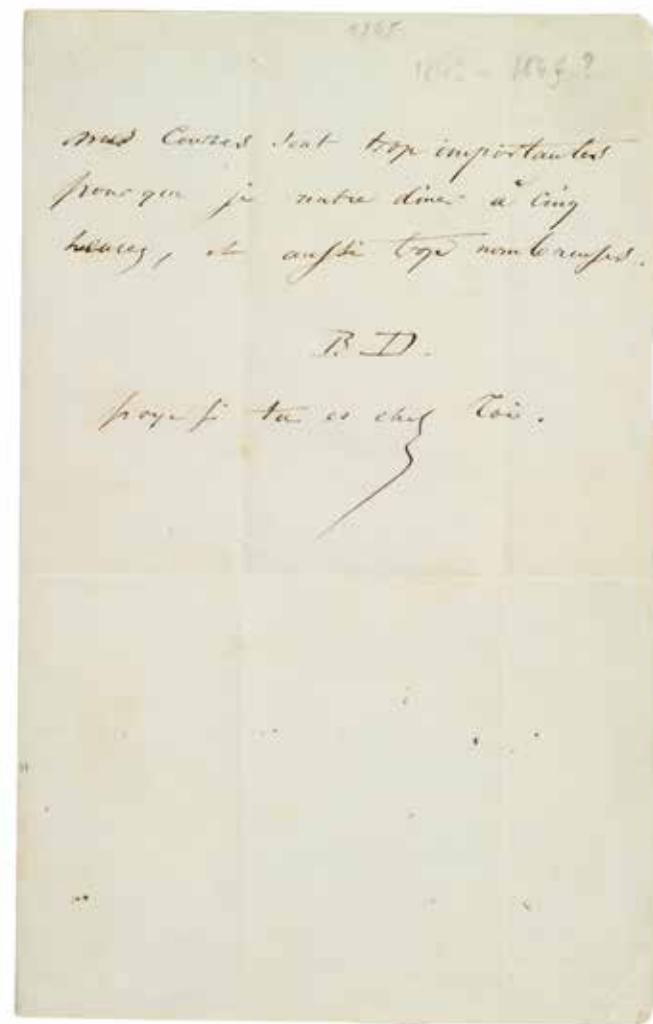 1845
184 - 184 ?
mes Courses sont trop importantes
pour que je rentre dîner à cinq
heures, et aussi trop nombreuses.
B. D.
si tu es chez Toi.